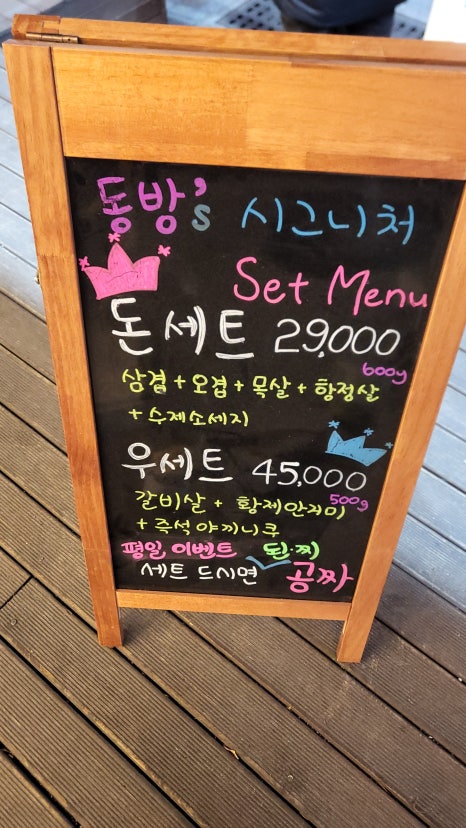 동방's 시그니처
Set Menu
돈세트 29,000
600g
삼겹 + 오겹 + 목살 + 항정살
+ 수제소세지
우세트 45,000
500g
갈비살 + 황제안거미
+ 즉석 야끼니쿠
평일 이벤트 된·찌
세트 드시면 공짜